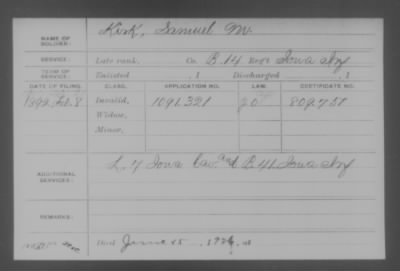 NAME OF SOLDIER: Kirk, Samuel M.
SERVICE: Late rank, Co. B. 14 Reg't Iowa Inf
TERM OF SERVICE: Enlisted , 1 Discharged , 1
DATE OF FILING. CLASS. APPLICATION NO. LAW. CERTIFICATE NO.
1892 Feb. 8 Invalid, 1091.321
Widow,
Minor,
ADDITIONAL SERVICES: L. 7 Iowa Cav. and B. 41 Iowa Inf
REMARKS:
Died June 25 , 192 , at